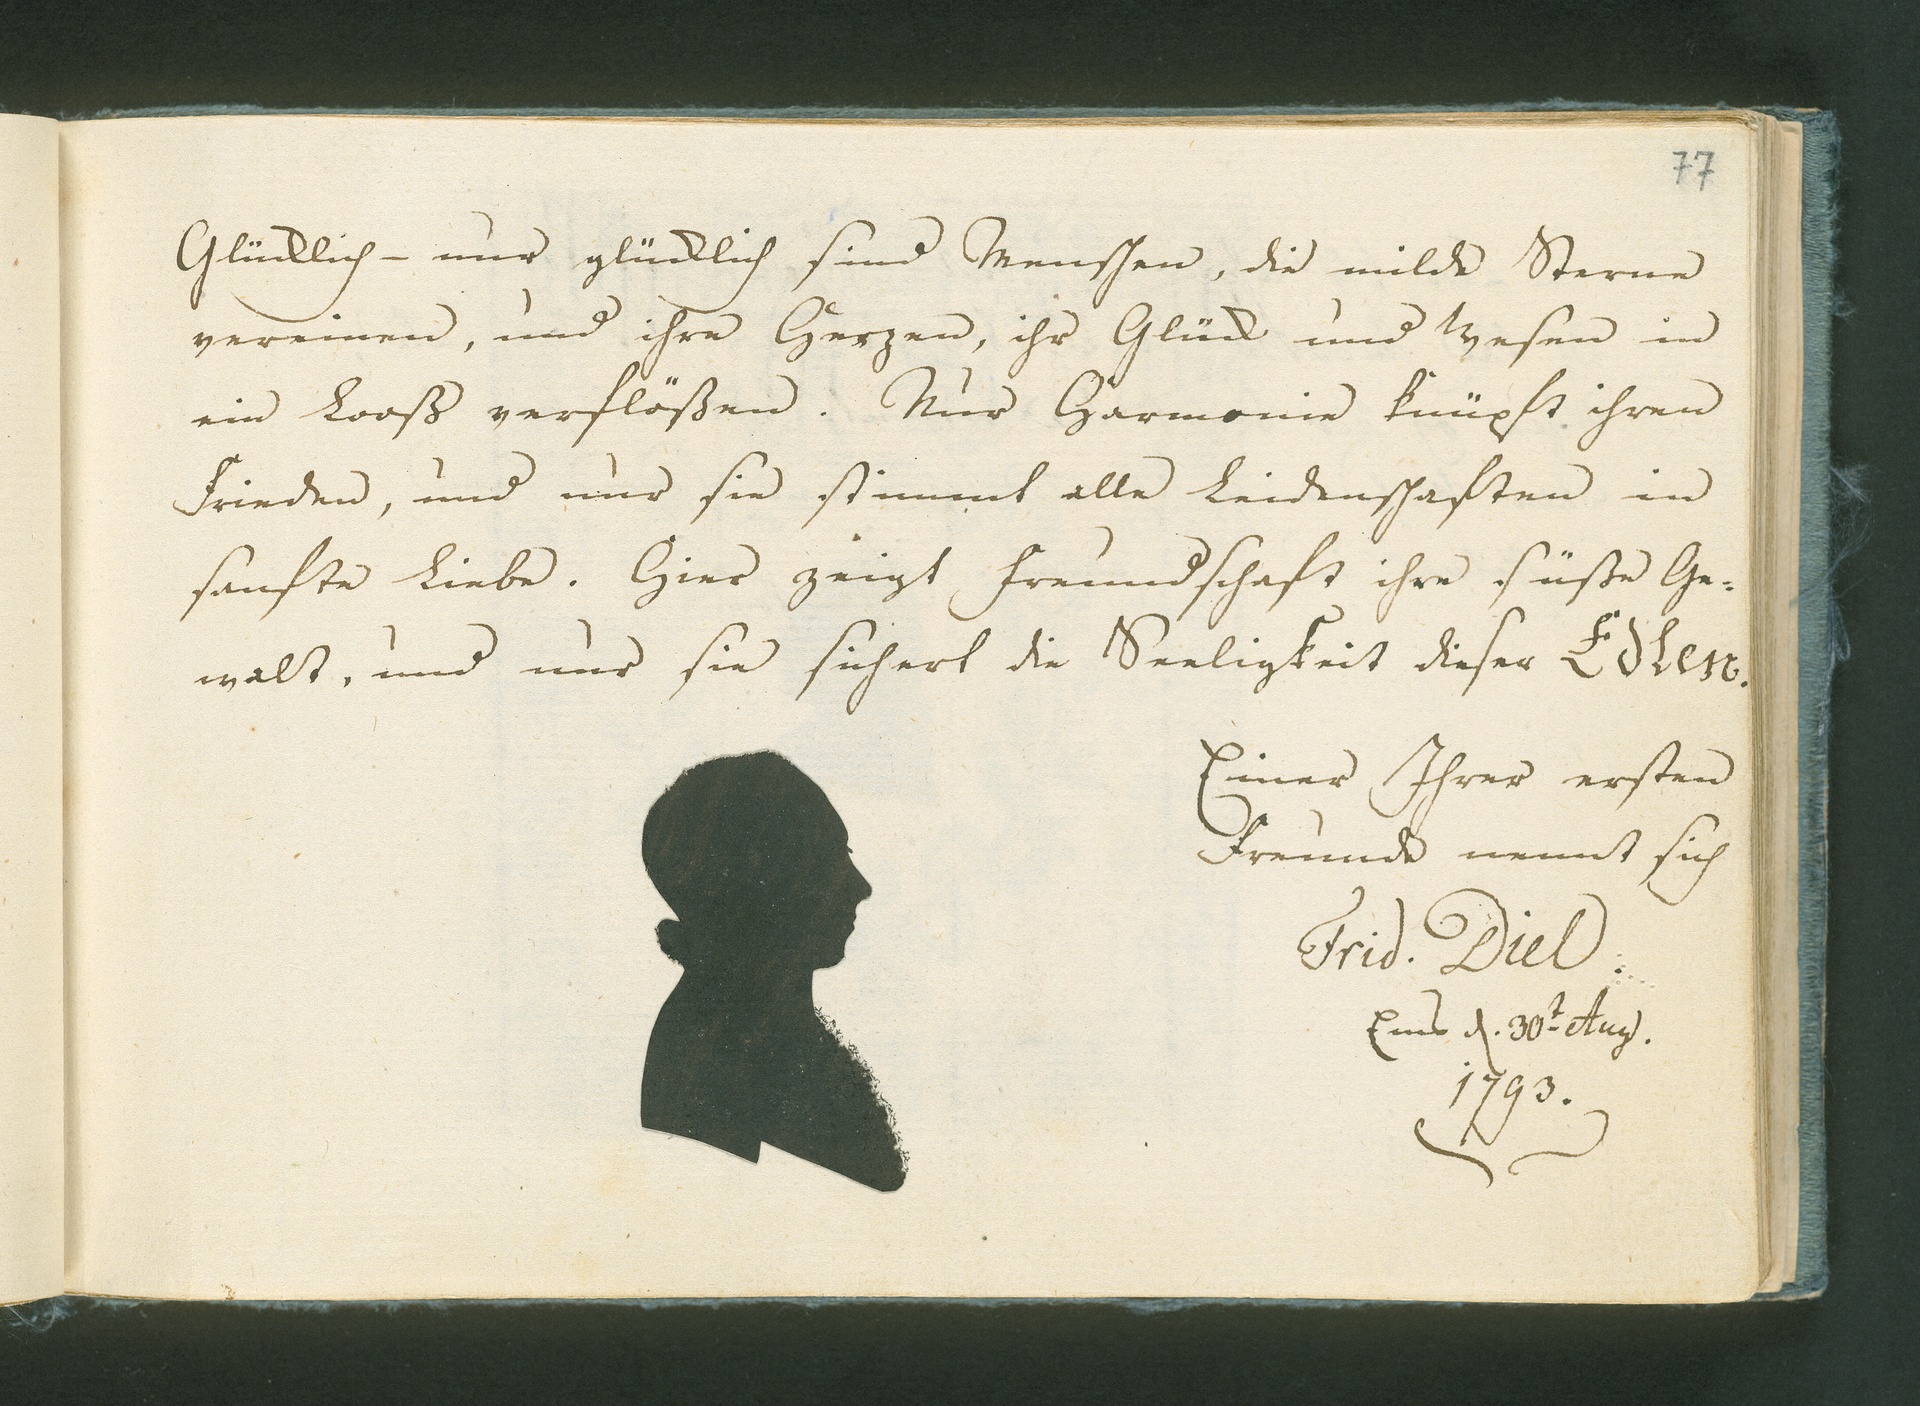 77
Glücklich – nur glücklich sind Menschen, die milde Sterne
vereinen, und ihre Herzen, ihr Glück und Wesen in
ein Looß verflößen. Nur Harmonie knüpft ihren
Frieden, und nur sie stimmt alle Leidenschaften in
sanfte Liebe. Hier zeigt Freundschaft ihre süße Ge-
walt, und nur sie sichert die Seeligkeit dieser Edlen.
Einer Ihrer ersten
Freunde nennt sich
Frid. Diel.
Ems d. 30t Aug.
1793.